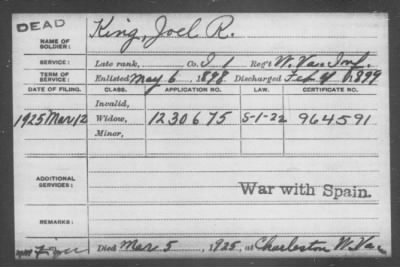 DEAD
NAME OF SOLDIER: King, Joel R.
SERVICE: Late rank, Co. I 1 Reg't W. Va. Inf.
TERM OF SERVICE: Enlisted May 6, 1898 Discharged Feb 4, 1899
DATE OF FILING. CLASS. APPLICATION NO. LAW. CERTIFICATE NO.
Invalid,
1925 Mar 12 Widow, 1230675 S-1-22 964591
Minor,
ADDITIONAL SERVICES:
War with Spain.
REMARKS:
Died Mar 5, 1925, at Charleston W. Va